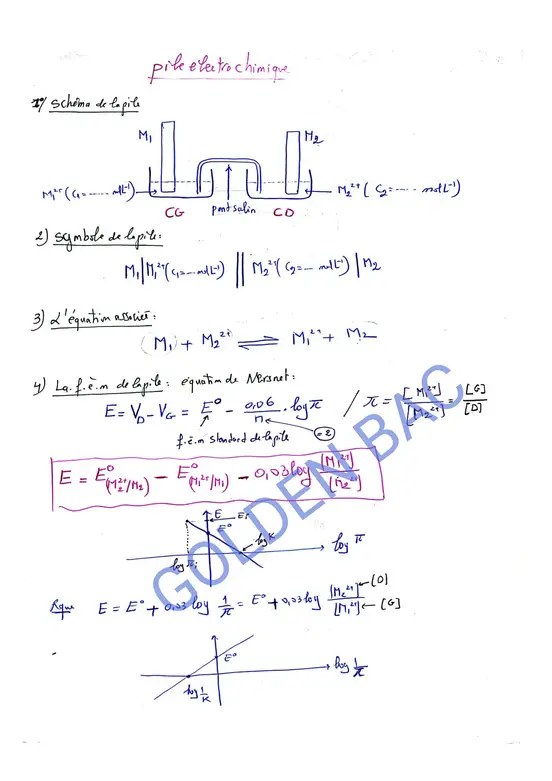 pile électrochimique
1°/ Schéma de la pile
M₁ M₂
M₁²⁺ (C₁ = ...... mol L⁻¹) pont salin M₂²⁺ ( C₂ = ..... mol L⁻¹)
CG CD
2) Symbole de la pile :
M₁ | M₁²⁺ (C₁ = ... mol L⁻¹) || M₂²⁺ (C₂ = ... mol L⁻¹) | M₂
3) L'équation associée :
M₁ + M₂²⁺ ⇌ M₁²⁺ + M₂
4) La f.é.m de la pile : équation de Nernst :
E = V_D - V_G = E° - 0,06/n . log π / π = [M₁²⁺]/[M₂²⁺] = [G]/[D]
f.é.m standard de la pile = 2
E = E°(M₂²⁺/M₂) - E°(M₁²⁺/M₁) - 0,03 log [M₁²⁺]/[M₂²⁺]
E Ei
E°
log K
log π
log πi
Rque E = E° + 0,03 log 1/π = E° + 0,03 log [M₂²⁺]/[M₁²⁺] ← [D] ← [G]
E°
log 1/π
log 1/K
GOLDEN BAC